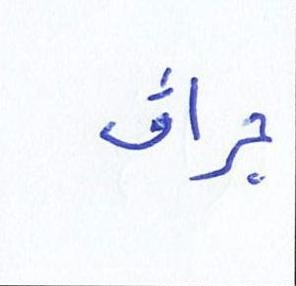 جراق